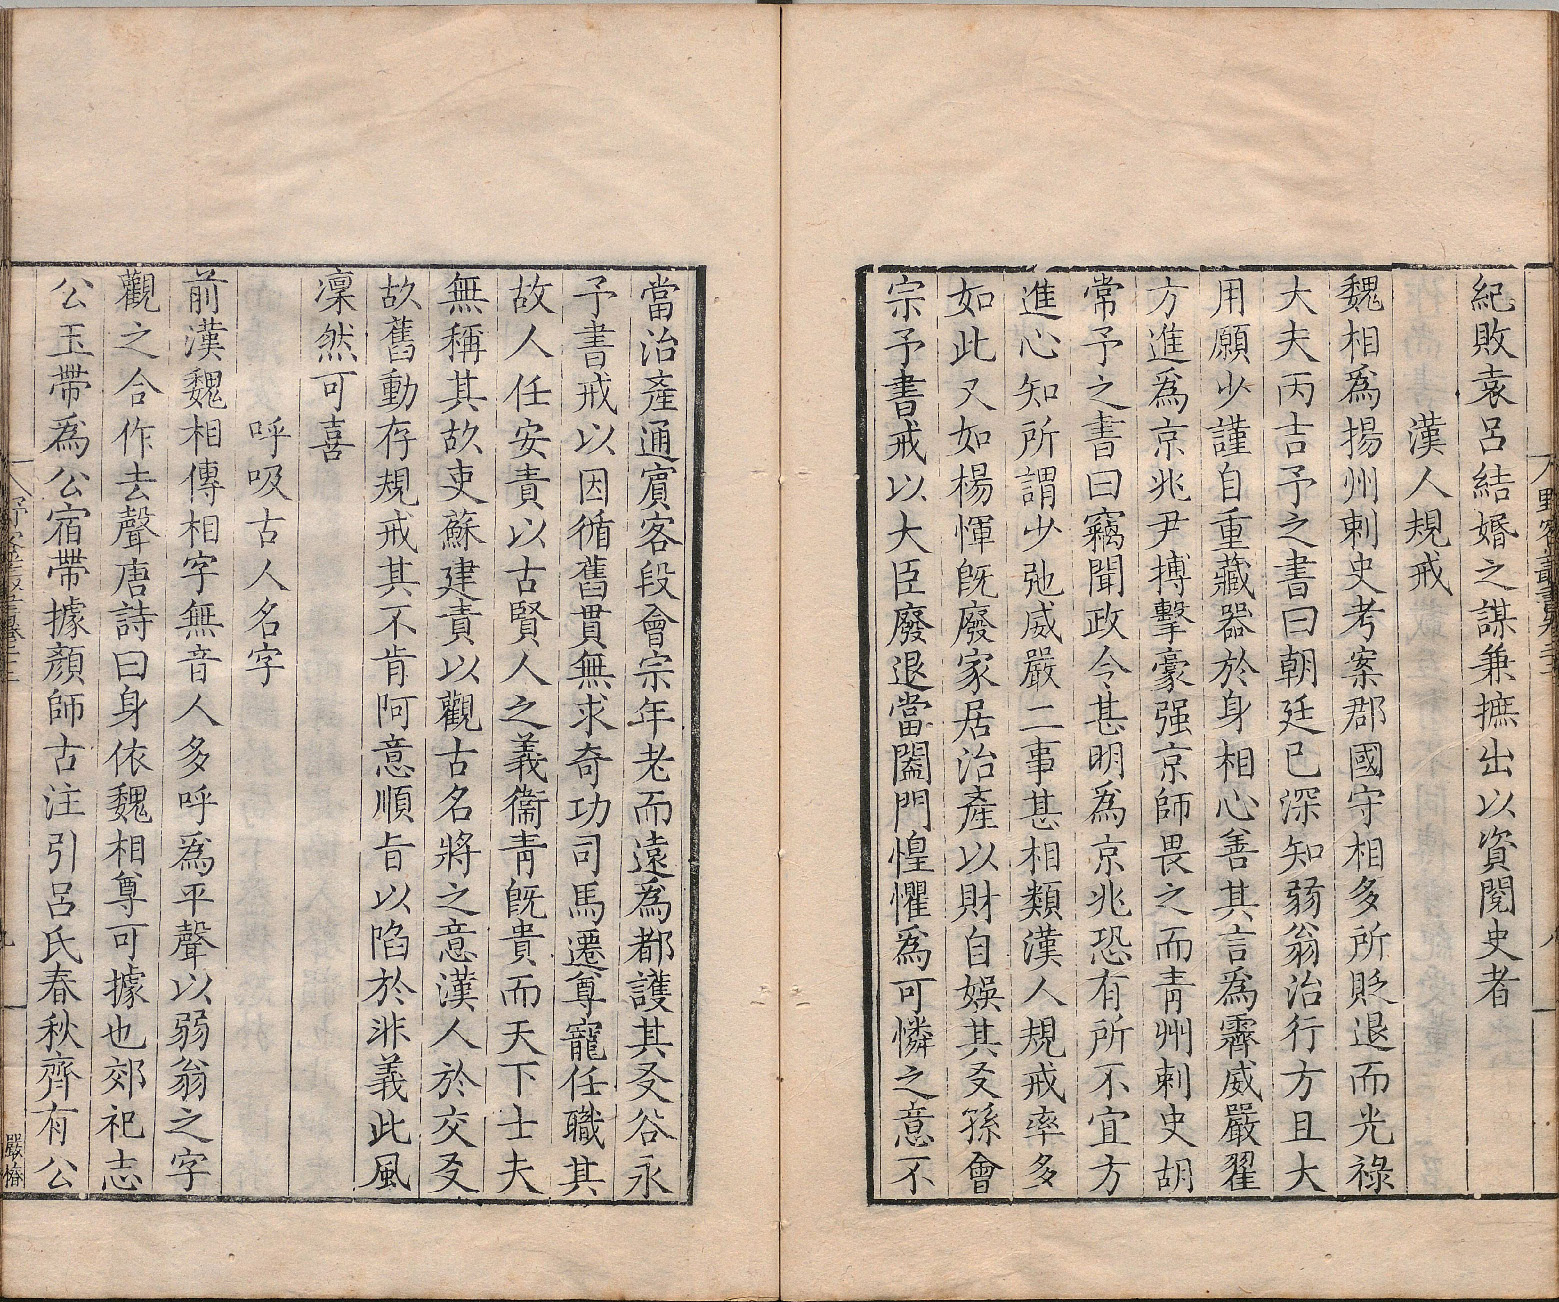 紀敗袁呂結婚之謀兼摭出以資閱史者
漢人規戒
魏相爲揚州刺史考案郡國守相多所貶退而光祿
大夫丙吉予之書曰朝廷已深知弱翁治行方且大
用願少謹自重藏器於身相心善其言爲霽威嚴翟
方進爲京兆尹搏擊豪强京師畏之而青州刺史胡
常予之書曰竊聞政令甚明爲京兆恐有所不宜方
進心知所謂少弛威嚴二事甚相類漢人規戒率多
如此又如楊惲旣廢家居治產以財自娛其友孫會
宗予書戒以大臣廢退當闔門惶懼爲可憐之意不
當治產通賓客段會宗年老而遠爲都護其友谷永
予書戒以因循舊貫無求奇功司馬遷尊寵任職其
故人任安責以古賢人之義衞青旣貴而天下士夫
無稱其故吏蘇建責以觀古名將之意漢人於交友
故舊動存規戒其不肯阿意順旨以陷於非義此風
凜然可喜
呼吸古人名字
前漢魏相傳相字無音人多呼爲平聲以弱翁之字
觀之合作去聲唐詩曰身依魏相尊可據也郊祀志
公玉帶爲公宿帶據顏師古注引呂氏春秋齊有公